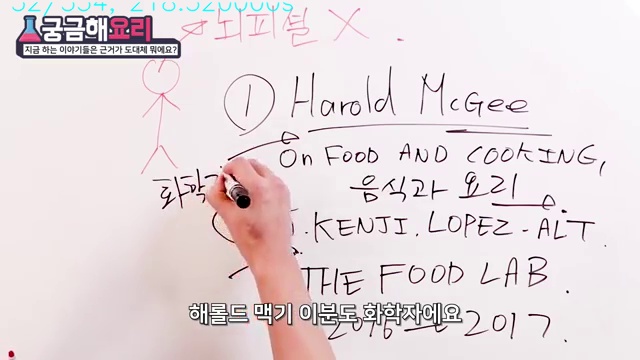 궁금해 요리
지금 하는 이야기들은 근거가 도대체 뭐예요?
뇌피셜 X.
① Harold McGee
ON FOOD AND COOKING,
음식과 요리
화학
J.KENJI.LOPEZ-ALT.
THE FOOD LAB.
해롤드 맥기 이분도 화학자에요
2017.